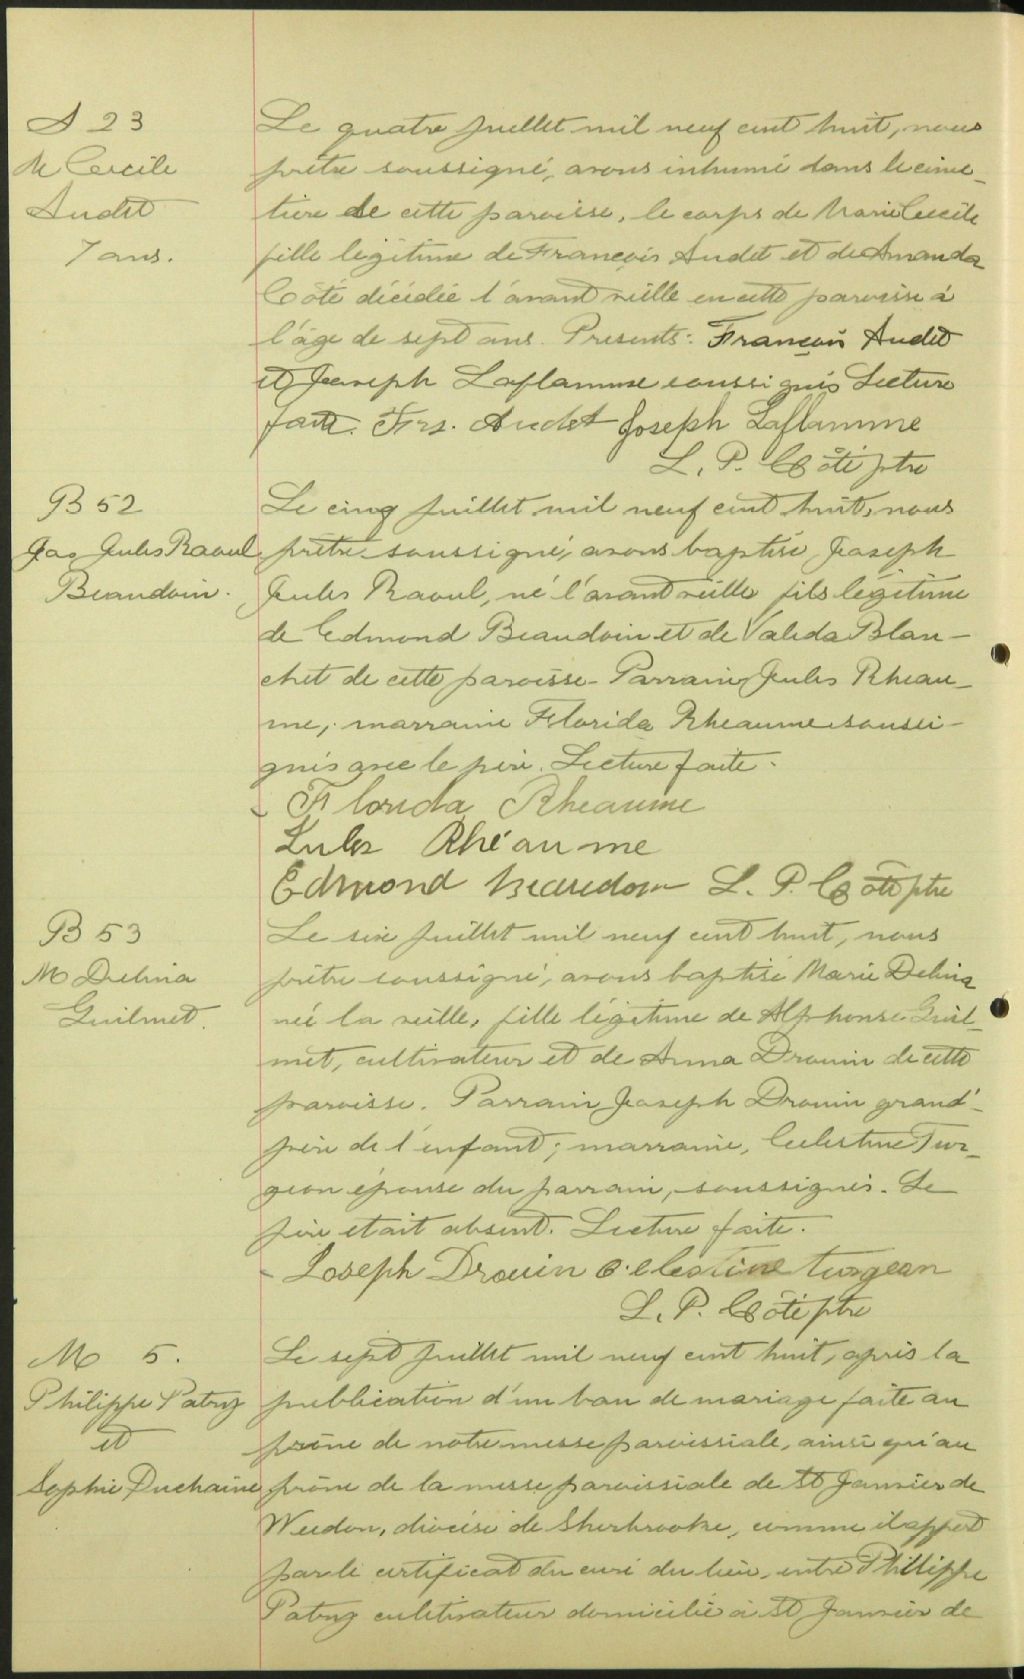 S 23
M Cecile
Audet
7 ans.
Le quatre juillet mil neuf cent huit, nous
prêtre soussigné, avons inhumé dans le cime-
tière de cette paroisse, le corps de Marie Cecile
fille légitime de François Audet et de Amanda
Côté décédée l'avant veille en cette paroisse à
l'âge de sept ans. Presents: François Audet
et Joseph Laflamme soussignés Lecture
faite. Frs. Audet Joseph Laflamme
L. P. Côté ptre
B 52
Jos Jules Raoul
Beaudoin.
Le cinq juillet mil neuf cent huit, nous
prêtre soussigné, avons baptisé Joseph
Jules Raoul, né l'avant veille fils légitime
de Edmond Beaudoin et de Valeda Blan-
chet de cette paroisse - Parrain Jules Rheau-
me, marraine Florida Rheaume soussi-
gnés avec le père. Lecture faite.
Florida Rheaume
Jules Rhéaume
Edmond Beaudoin L. P. Côté ptre
B 53
M Delina
Guilmet.
Le six juillet mil neuf cent huit, nous
prêtre soussigné, avons baptisé Marie Delina
née la veille, fille légitime de Alphonse Guil-
met, cultivateur et de Anna Drouin de cette
paroisse. Parrain Joseph Drouin grand'-
père de l'enfant; marraine, Celestine Tur-
geon épouse du parrain, soussignés. Le
père etait absent. Lecture faite.
Joseph Drouin Celestine Turgeon
L. P. Côté ptre
M 5.
Philippe Patry
et
Sophie Duchaine
Le sept juillet mil neuf cent huit, après la
publication d'un ban de mariage faite au
prône de notre messe paroissiale, ainsi qu'au
prône de la messe paroissiale de St Janvier de
Weedon, diocèse de Sherbrooke, comme il appert
par le certificat du curé du lieu, entre Philippe
Patry cultivateur domicilié à St Janvier de